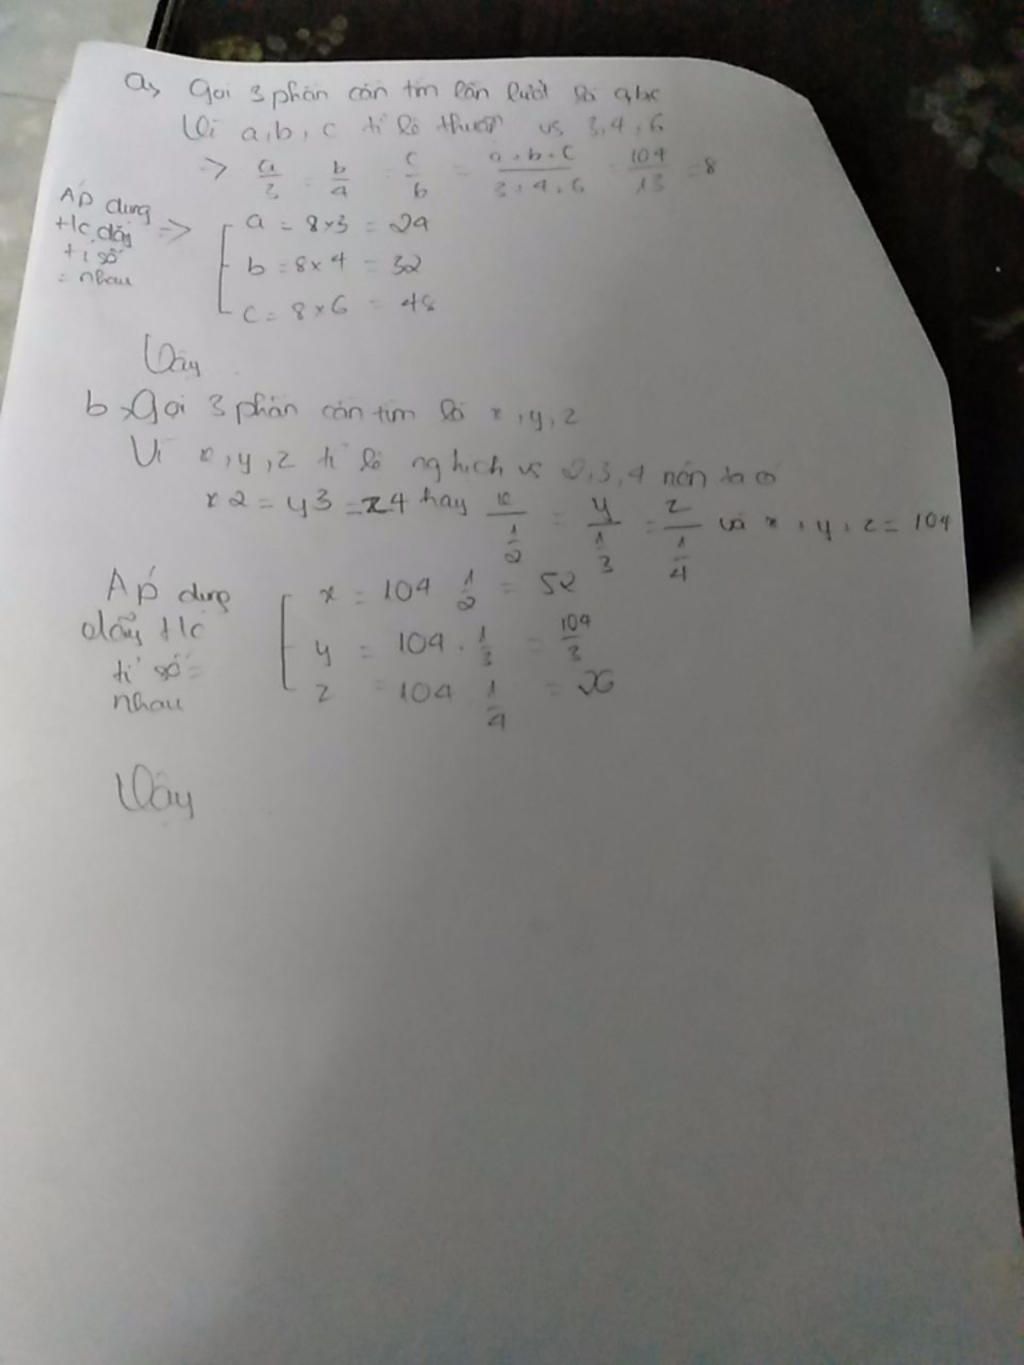 a, Gọi 3 phần cần tìm lần lượt là a,b,c
Vì a, b, c tỉ lệ thuận vs 3, 4, 6
=> a/3 = b/4 = c/6 = a+b+c/3+4+6 = 104/13 = 8
Áp dụng
t/c dãy
tỉ số
= nhau
=> a = 8x3 = 24
b = 8x4 = 32
c = 8x6 = 48
Vậy
b, Gọi 3 phần cần tìm là x, y, z
Vì x, y, z tỉ lệ nghịch vs 2, 3, 4 nên ta có
x2 = y3 = z4 hay x/(1/2) = y/(1/3) = z/(1/4) và x + y + z = 104
Áp dụng
dãy t/c
tỉ số =
nhau
x = 104 1/2 = 52
y = 104 . 1/3 = 104/3
z = 104 1/4 = 26
Vậy